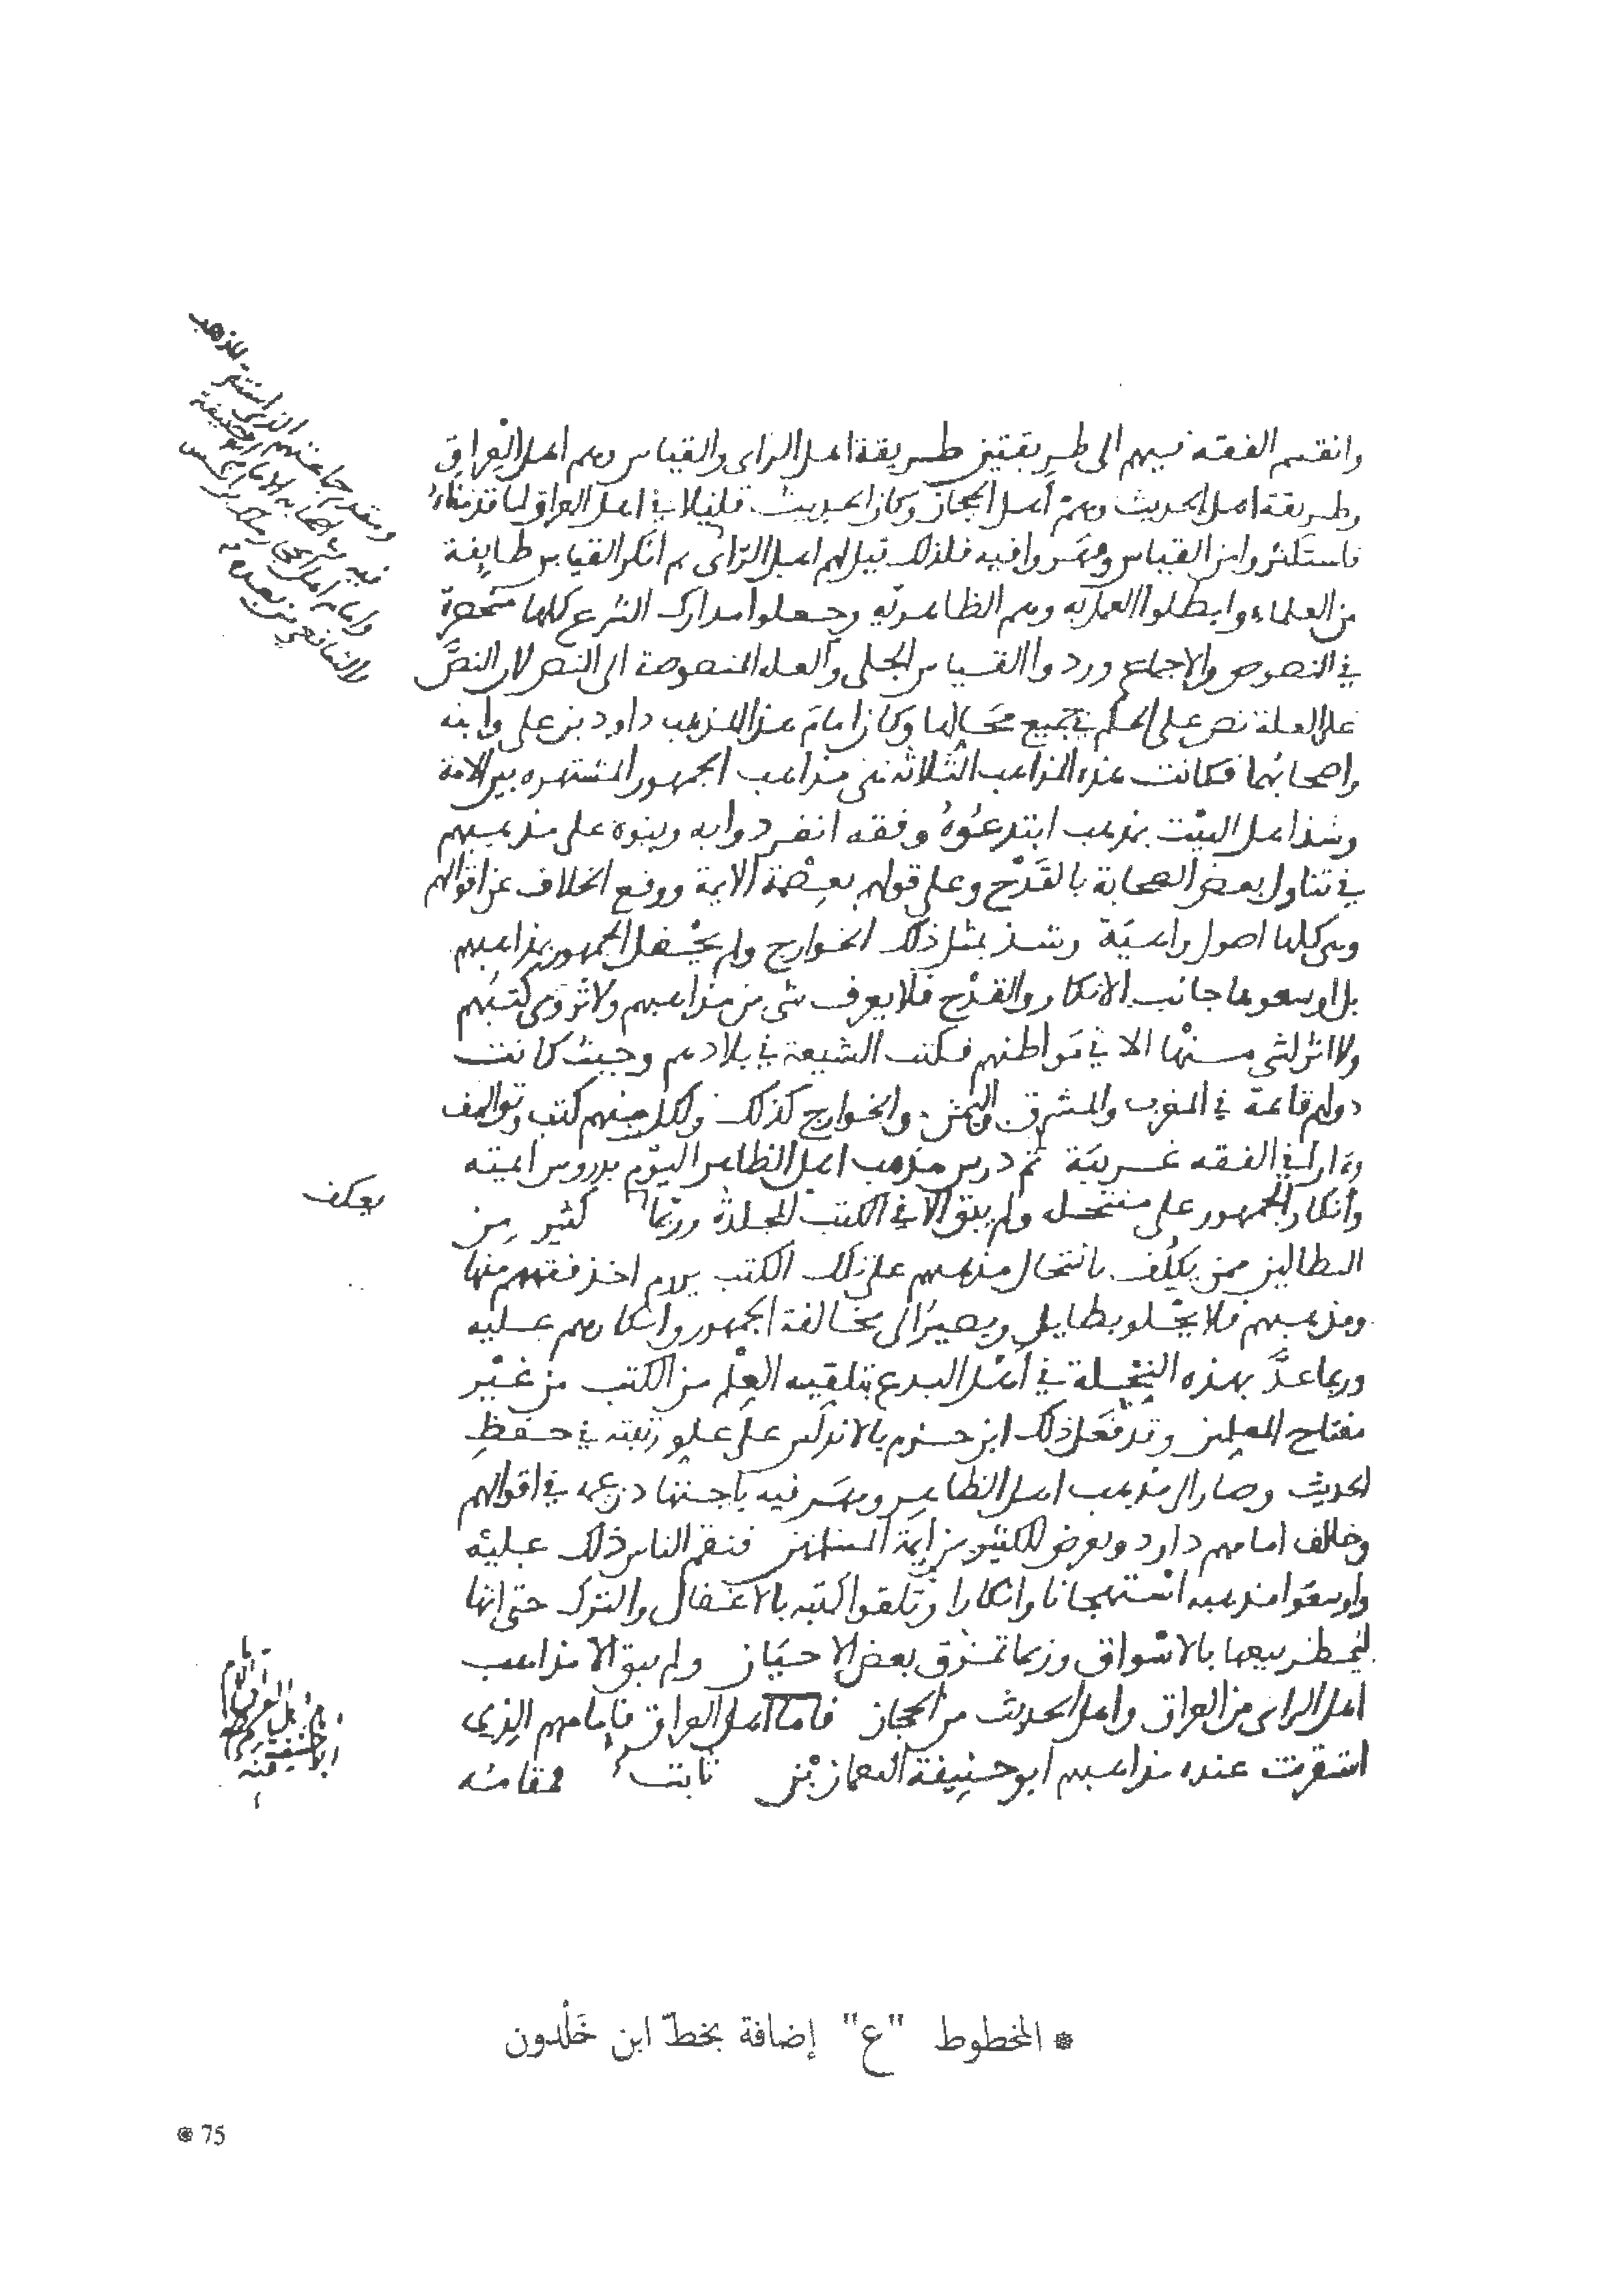 وانقسم الفقه فيهم الى طريقتين طريقة اهل الراى والقياس وهم اهل العراق
وطريقة اهل الحديث وهم اهل الحجاز وكان الحديث قليلا في اهل العراق لما قدمناه
فاستكثروا من القياس ومهَروا فيه فلذلك قيل لهم اهل الرّاى ثم انكر القياس طايفة
من العلماء وابطلوا العمل به وهم الظاهريّه وجعلوا مدارك الشرع كلها منحصرة
في النصوص والاجماع وردوا القياس الجلى والعله المنصوصة الى النص لان النصَّ
على العلة نص على الحكم في جميع محَالها وكان امامَ هذا المذهب داود بن على وابنه
واصحابُهما فكانت هذه المذاهب الثّلاثه هى مذاهب الجمهور المشتهره بين الامة
وشذ اهل البيْت بمذهب ابتدعُوهُ وفقه انفردوا به وبنوه على مذهبهم
في تناول بعض الصحابة بالقَدْح وعلى قولهم بعِصْمة الايمة ورفع الخلاف عن اقوالهم
وهى كلها اصول واهيَة وشذ بمثل ذلك الخوارج ولم يحْفل الجمهور بمذاهبهم
بل اوسعوها جانب الانكار والقدْح فلا يعرف شى من مذاهبهم ولا تُروى كتبُهم
ولا اثر لشى منْها الا في مَواطنهم فكتب الشيعة في بلادهم وحيث كانت
دولهم قائمة في المغرب والمشرق واليمن والخوارج كذلك ولكل منهم كتب وتواليف
واراء في الفقه غريبَة ثم درس مذهب اهل الظاهر اليوْم بدروس ايمته
وانكار الجمهور على منتحله ولم يبق الا في الكتب المجلدة وربّما كثير مِن
الطالبين ممن يكلُف بانتحال مذهبهم على تلك الكتب يروم اخذ فقههم منها
ومذهبهم فلا يحْلو بطايل ويصيرُ الى مخالفة الجمهور وانكارهم عليه
وربما عدَّ بهذه النِحْلة في اهْل البدع بتلقيه العِلْم من الكتب من غيْر
مفتاح المعلمين وقد فعَل ذلك ابن حزم بالاندلس على علو رتبته في حفظِ
الحديث وصار الى مذهب اهل الظاهر ومهَر فيه باجتهاد زعمه في اقوالهم
وخالف امامهم داود وتعرض للكثير من ايمَة المسلمين فنقم الناس ذلك عليْه
واوسعَوا مذهبه اسْتهجانا وانكارا وتلقوا كتبه بالاغفال والترك حتى انها
ليُحظر بيعها بالاسْواق وربما تمزق بعض الاحيَان ولم يبق الا مذاهب
اهل الراى من العراق واهل الحديث من الحجاز فاما اهل العراق فامامهم الذى
استقرت عنده مذاهبهم ابو حنيفة النعمان بْن ثابت ومقامُه
ومقدم جماعتهم الذى استقر المذهب
فيه وفى اصحابه الامام ابو حنيفة
وامام اهل الحجاز ملك بن انس
والشافعي من بعده
يعكف
* المخطوط "ع" إضافة بخطّ ابن خَلْدون
75 *